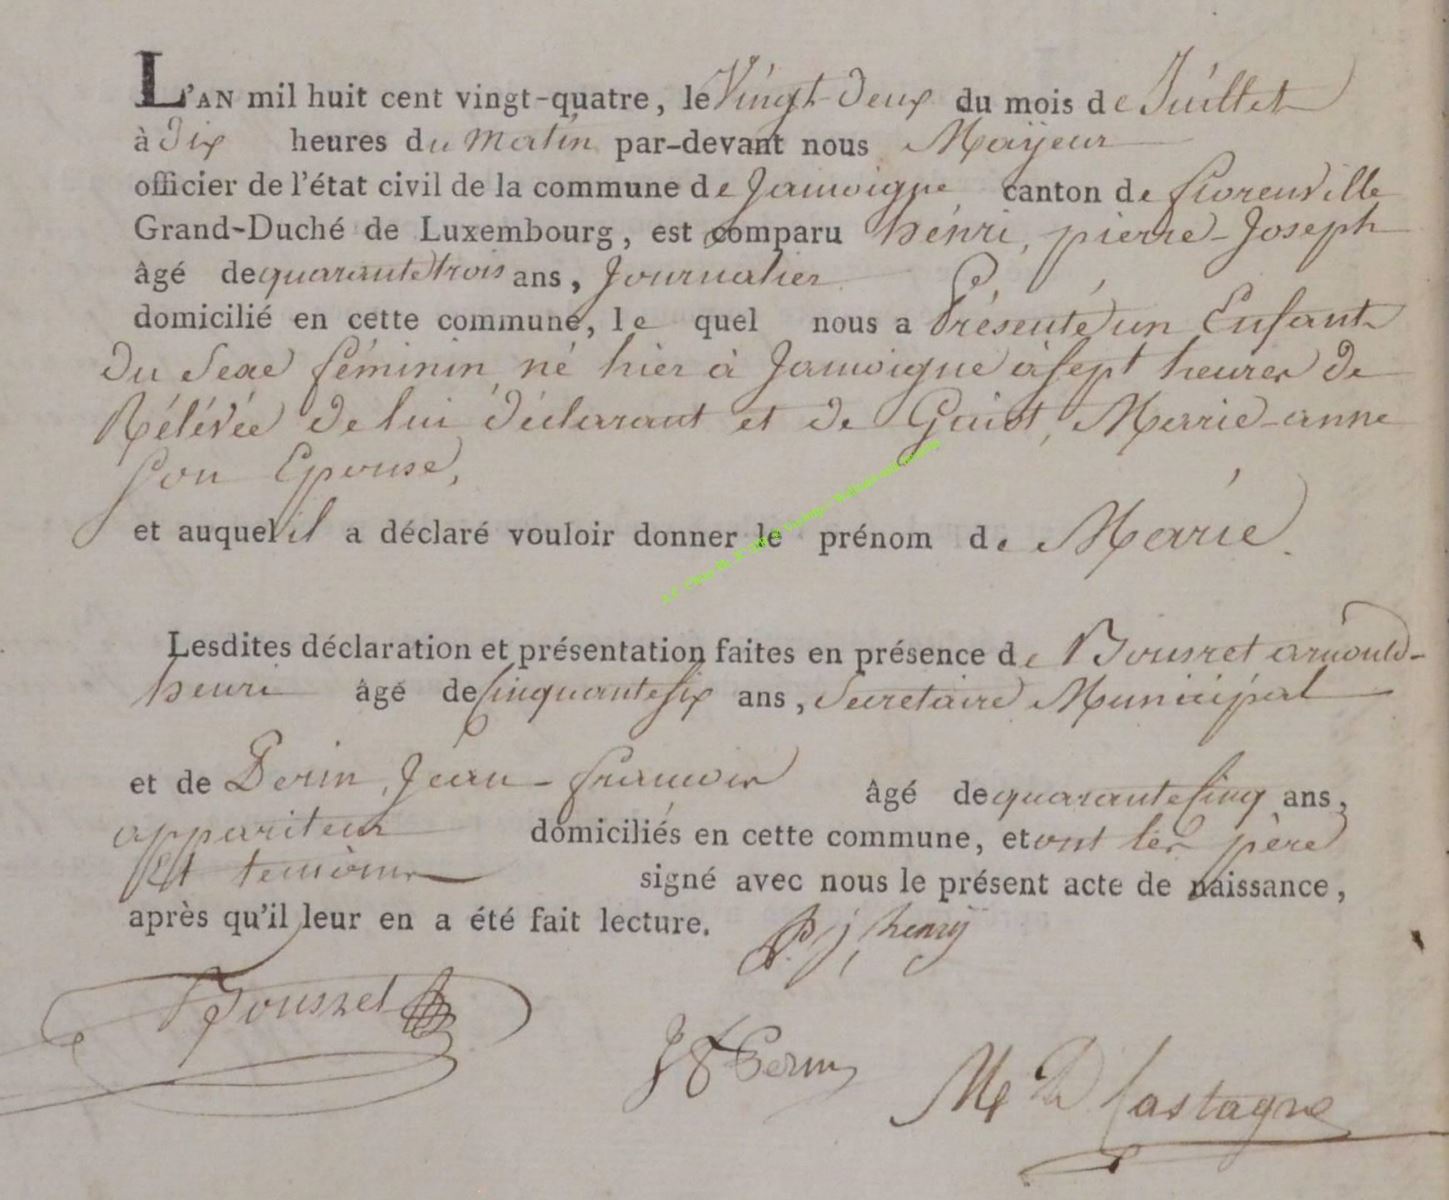 L'AN mil huit cent vingt-quatre, le Vingt-Deux du mois de Juillet
à Dix heures du Matin par-devant nous Mayeur
officier de l'état civil de la commune de Jamoigne canton de florenville
Grand-Duché de Luxembourg, est comparu henri, pierre-Joseph
âgé de quarante trois ans, Journalier
domicilié en cette commune, le quel nous a Présenté un Enfant
Du Sexe féminin né hier à Jamoigne à sept heures de
Rélévée de lui déclarant et de Guiot, Marie-anne
Son Epouse,
et auquel il a déclaré vouloir donner le prénom de Marie.
Lesdites déclaration et présentation faites en présence de Bousret arnould-
henri âgé de Cinquante six ans, Secretaire Municipal
et de Perin, Jean-francois âgé de quarante Cinq ans,
appariteur domiciliés en cette commune, et ont les père
Et temoins signé avec nous le présent acte de naissance,
après qu'il leur en a été fait lecture. P. j. henry
Bousret
J F Perin M De Lastagne